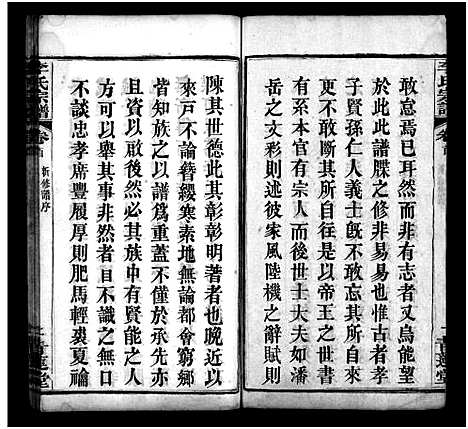 敢怠焉已耳然而非有志者又烏能望
於此此譜牒之修非易易也惟古者孝
子賢孫仁人義士既不敢以帝王之世書
岳之本官有宗人而後世士大夫如潘
岳之本官有宗人而後世士大夫如潘
岳又有述彼家風陸機之辭賦則
陳其世德此其彰彰明著者也晚近以
來戸不論簪纓寒素地無論都會窮鄉
皆知族之以譜爲重蓋不僅於承先亦
且資以啟後然必其族中有賢能之人
方可以舉其事非然者目不識之無口
不談忠孝席豐履厚則肥馬輕裘夏論
李氏宗譜
卷首
新修譜序